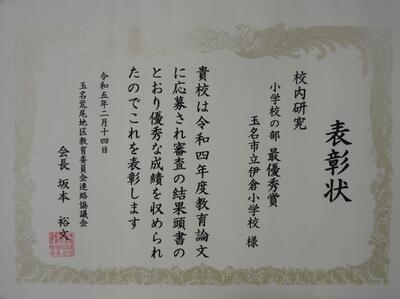 表彰状
校内研究
小学校の部 最優秀賞
玉名市立伊倉小学校 様
貴校は令和四年度教育論文
に応募され審査の結果頭書の
とおり優秀な成績を収められ
たのでこれを表彰します
令和五年二月十四日
玉名荒尾地区教育委員会連絡協議会
会長 坂本 裕文